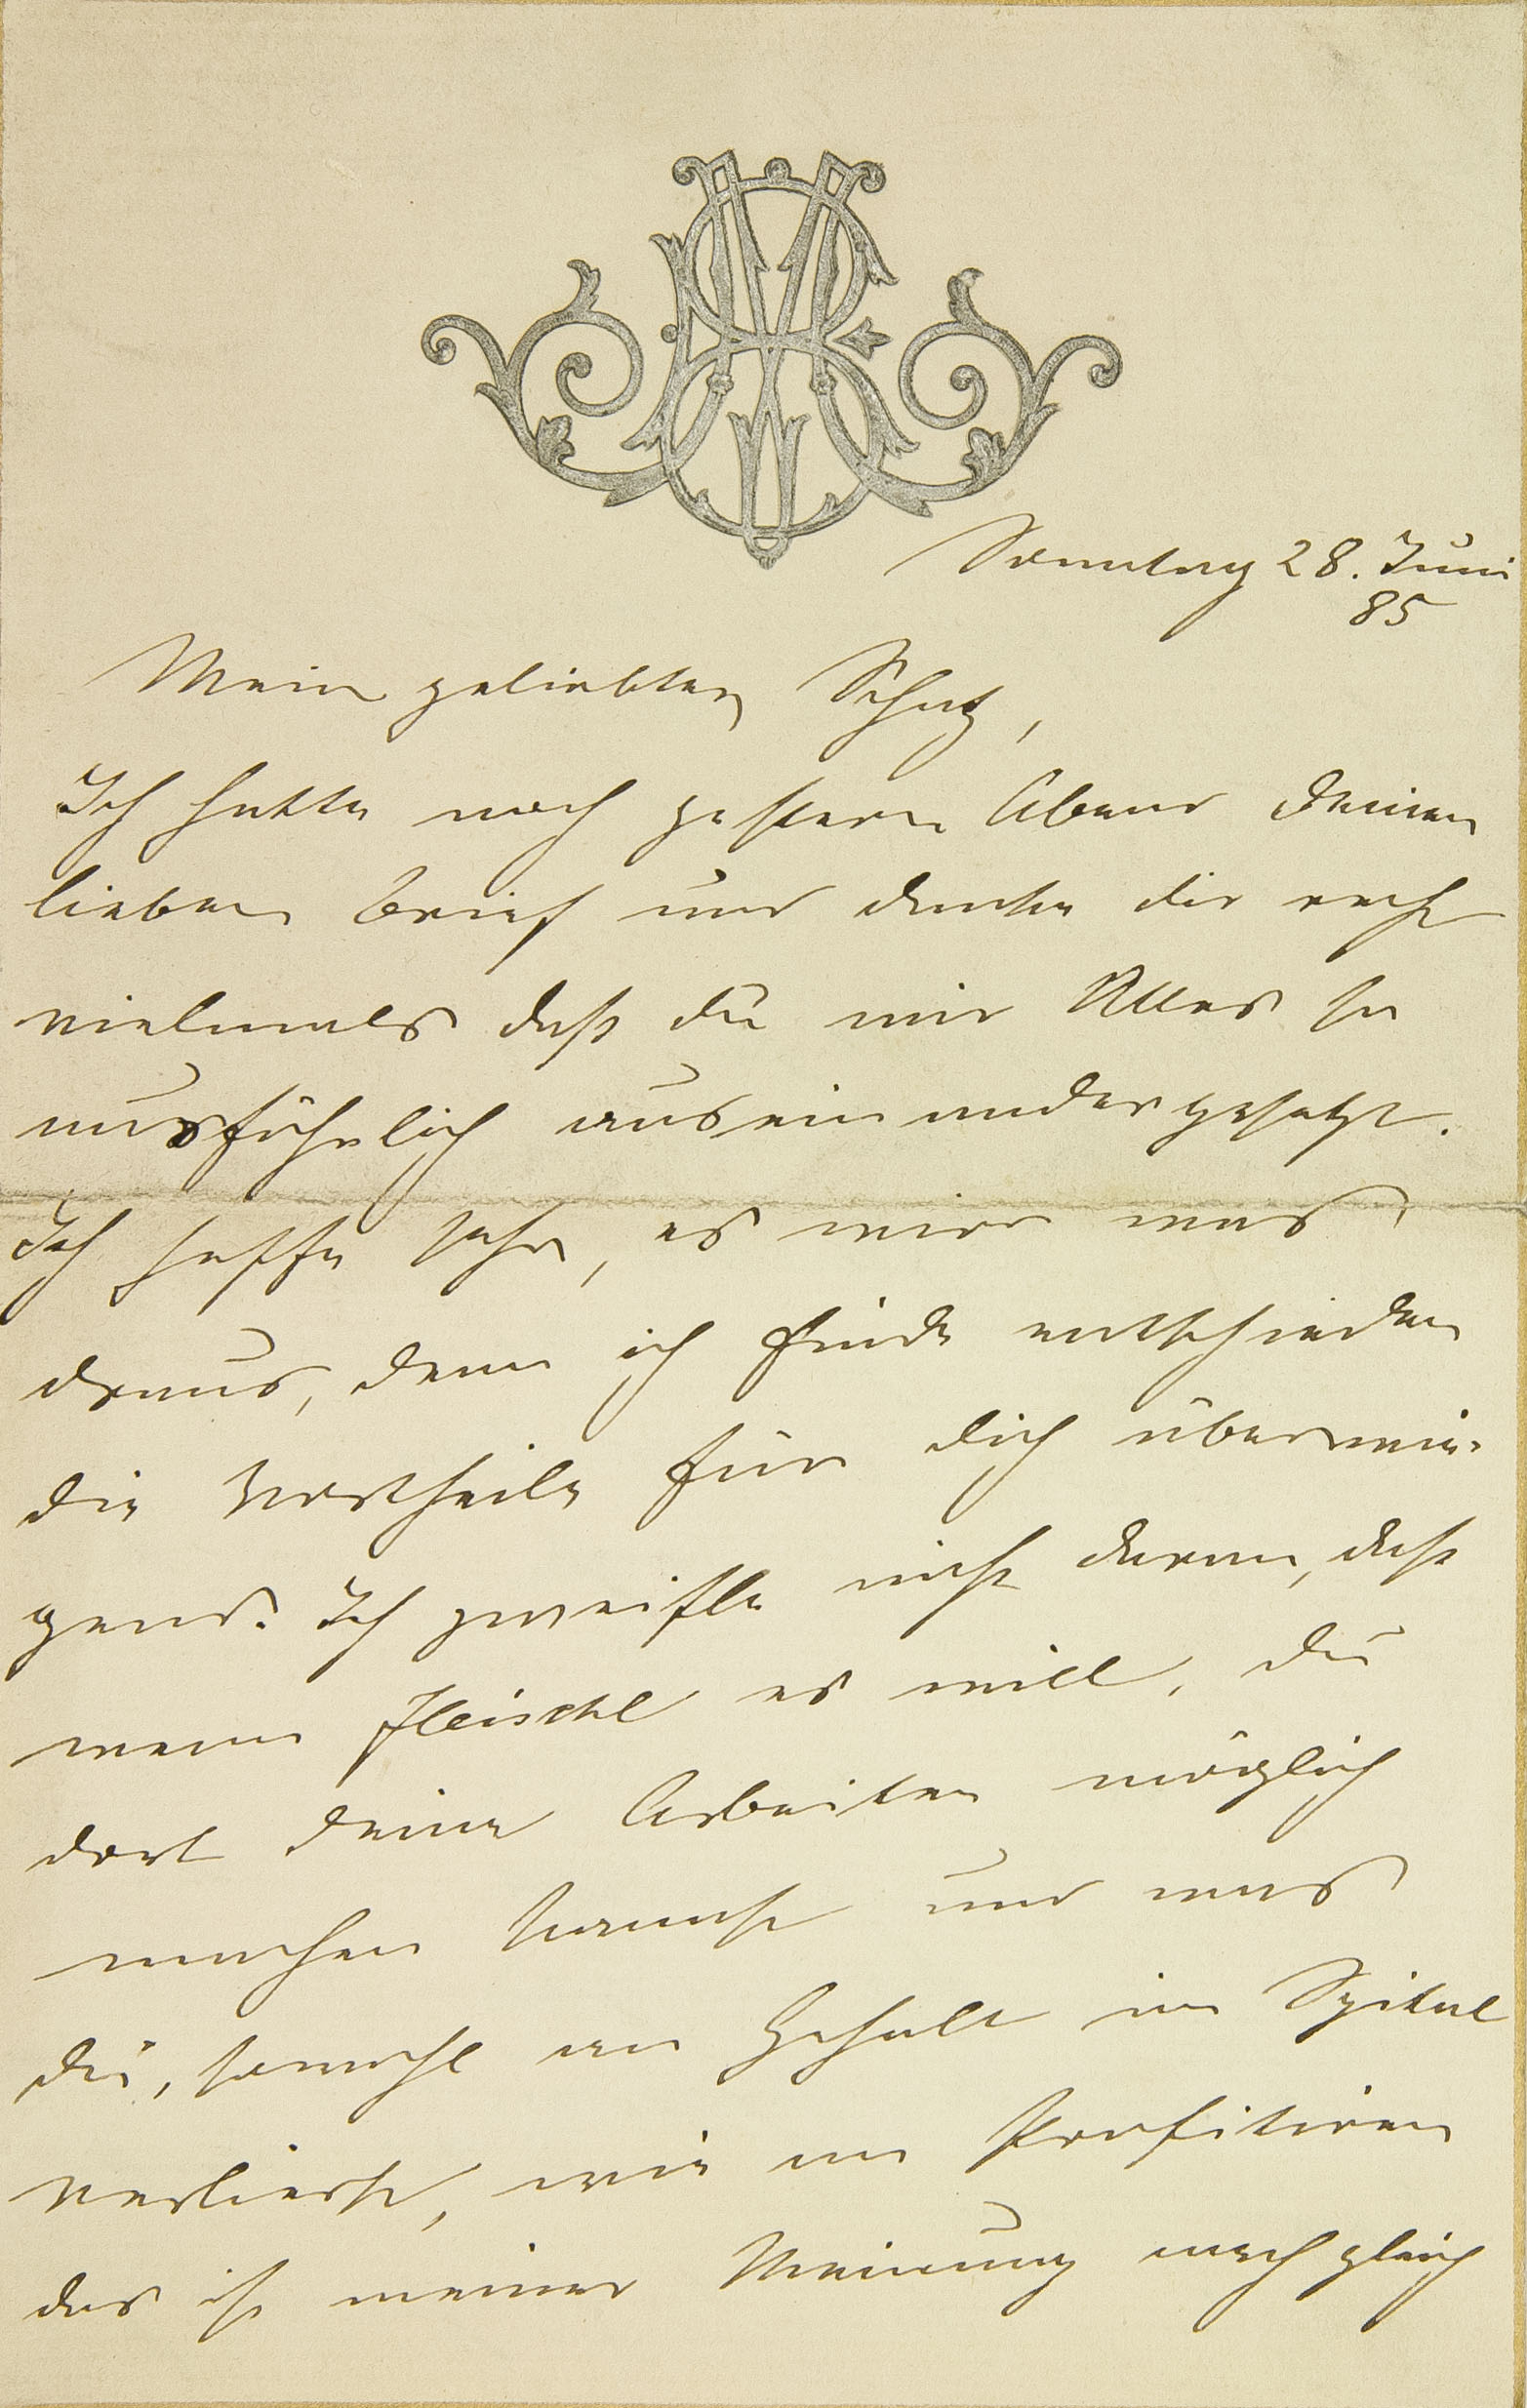 Sonntag 28. Juni
85
Mein geliebter Schatz,
Ich hatte noch gestern Abend Deinen
lieben Brief und danke dir recht
vielmals daß du mir Alles so
ausführlich auseinandergesetzt.
Ich hoffe sehr, es wird was
draus, denn ich finde entschieden
die Vortheile für dich überwie-
gend. Ich zweifle nicht daran, daß
wenn Fleischl es will, du
dort deine Arbeiten möglich
machen kannst und was
du, sowohl an Gehalt im Spital
verlierst, wie an Profitiren
das ist meiner Meinung nach gleich